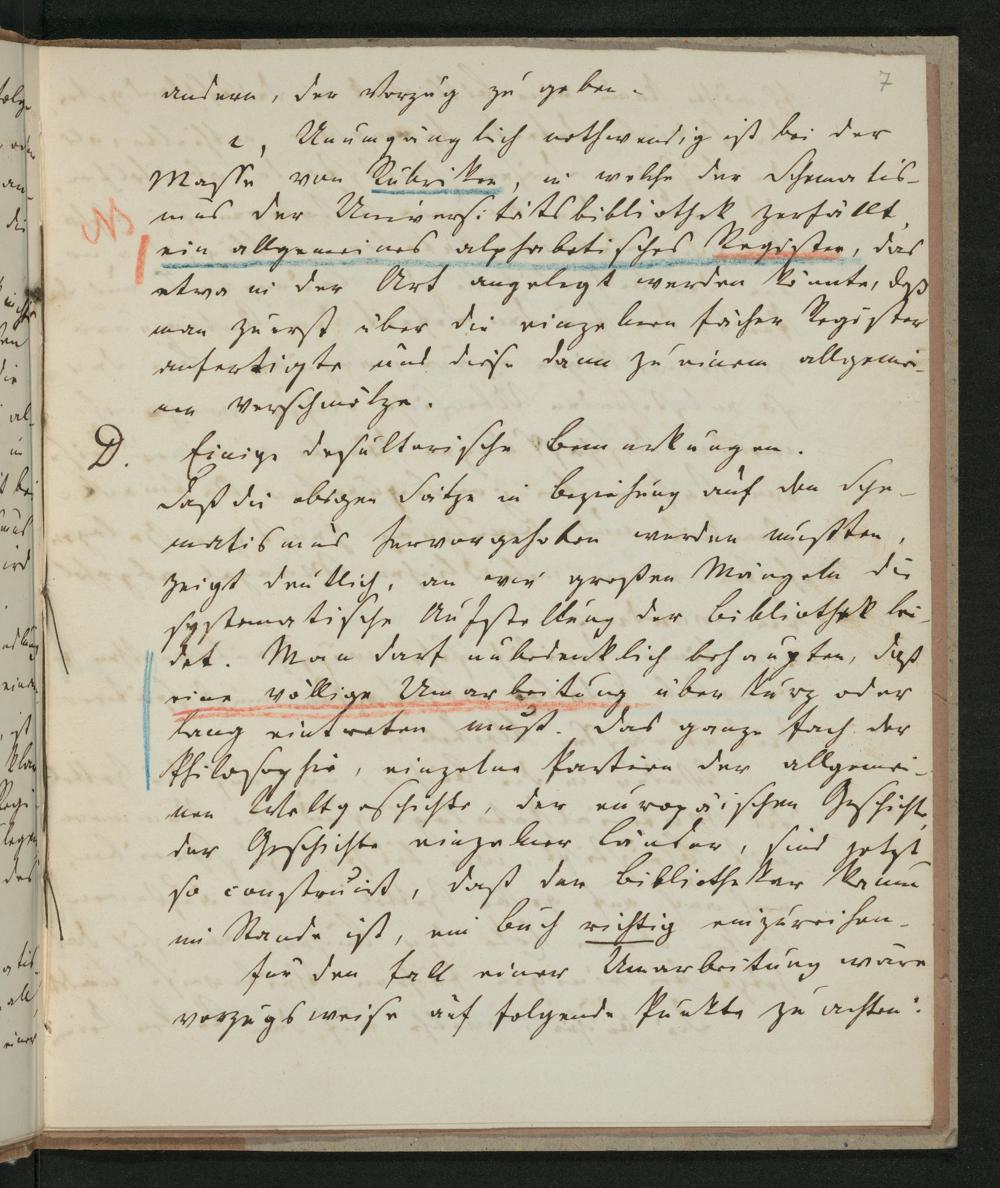 7
andern, der Vorzug zu geben.
e, Unumgänglich nothwendig ist bei der
Masse von Rubriken, in welche der Schematis-
mus der Universitätsbibliothek zerfällt,
NB
ein allgemeines alphabetisches Register, das
etwa in der Art angelegt werden könnte, daß
man zuerst über die einzelnen Fächer Register
anfertigte und diese dann zu einem allgemei-
nen verschmölze.
D. Einige desultorische Bemerkungen.
Daß die obigen Sätze in Beziehung auf den Sche-
matismus hervorgehoben werden mußten,
zeigt deutlich, an wie großen Mängeln die
systematische Aufstellung der Bibliothek lei-
det. Man darf unbedenklich behaupten, daß
eine völlige Umarbeitung über kurz oder
lang eintreten muß. Das ganze Fach der
Philosophie, einzelne Partien der allgemei-
nen Weltgeschichte, der europäischen Geschichte,
der Geschichte einzelner Länder, sind jetzt
so construirt, daß der Bibliothekar kaum
im Stande ist, ein Buch richtig einzureihen.
Für den Fall einer Umarbeitung wäre
vorzugsweise auf folgende Punkte zu achten: